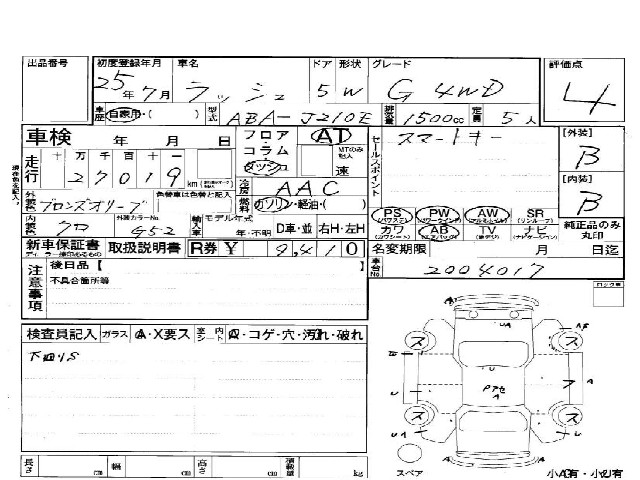 出品番号 初度登録年月 車名 ドア 形状 グレード 評価点
25年7月 ラッシュ 5 W G 4WD 4
車歴 自家用・( ) 型式 ABA-J210E 排気量 1500cc 定員 5人
車検 年 月 日 フロア コラム ダッシュ AT MTのみ記入 速
セールスポイント スマートキー
[外装] B
走行 十万千百十一 27019 km
冷房 AAC
[内装] B
外装色 ブロンズオリーブ 色替車は色替と記入 燃料 ガソリン・軽油・( )
内装色 クロ 外装カラーNo. G52 輸入車 モデル年式 年・不明 D車・並 右H・左H
PS (パワステ) PW (パワーウィンド) AW (アルミホイール) SR (サンルーフ)
カワ (カワシート) AB (エアバッグ) TV ナビ (ナビゲーション)
純正品のみ丸印
新車保証書 取扱説明書 R券 ¥ 9,410
名変期限 月 日迄
注意事項 後日品【 】
不具合箇所等
車台No. 2004017
ロック車
検査員記入 ガラス A・X要ス 室内 シート A・コゲ・穴・汚れ・破れ
下回りS
ス ス
PアセA
ス ス
長さ cm 幅 cm 高さ cm 積載量 kg
スペア 小A有・小U有